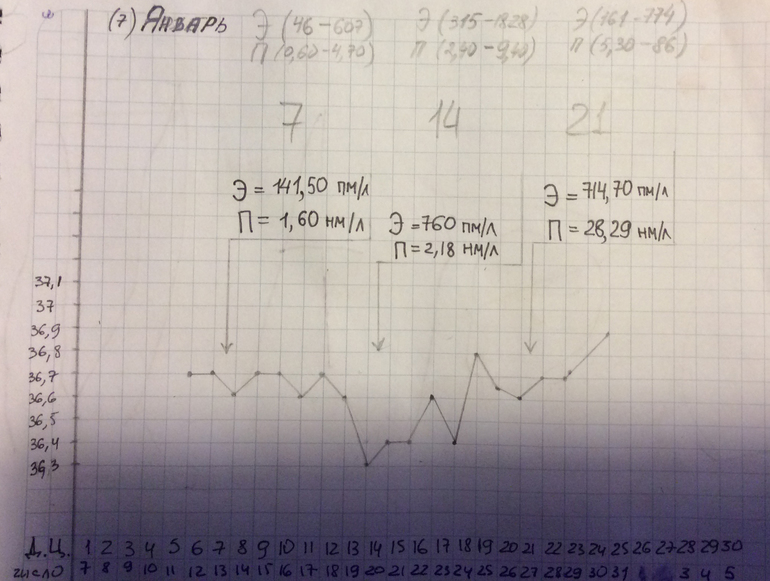 (7) Январь Э (46-607) Э (315-1828) Э (161-774)
П (0,60-4,70) П (2,40-9,40) П (5,30-86)
7 14 21
Э = 141,50 пм/л
П = 1,60 нм/л
Э = 760 пм/л
П = 2,18 нм/л
Э = 714,70 пм/л
П = 28,29 нм/л
37,1
37
36,9
36,8
36,7
36,6
36,5
36,4
36,3
Д.Ц. 1 2 3 4 5 6 7 8 9 10 11 12 13 14 15 16 17 18 19 20 21 22 23 24 25 26 27 28 29 30
число 7 8 9 10 11 12 13 14 15 16 17 18 19 20 21 22 23 24 25 26 27 28 29 30 31 3 4 5